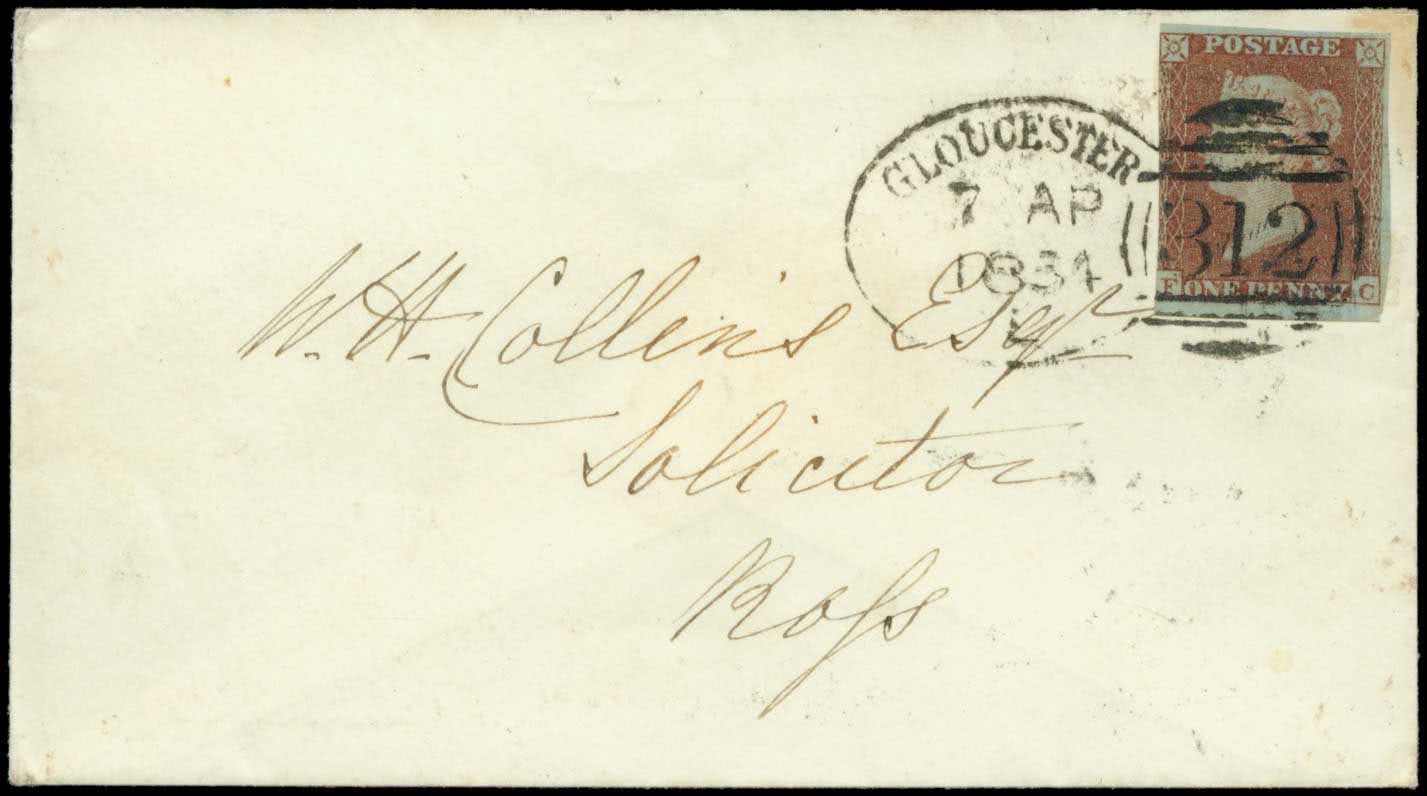 POSTAGE
GLOUCESTER
7 AP
1854
312
F ONE PENNY. C
W. H. Collins Esqr
Solicitor
Roſs